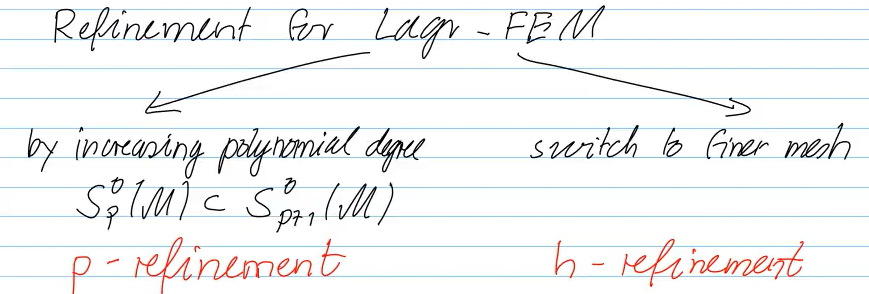 Refinement for Lagr-FEM
by increasing polynomial degree
switch to finer mesh
S_p^0(M) ⊂ S_{p+1}^0(M)
p-refinement
h-refinement